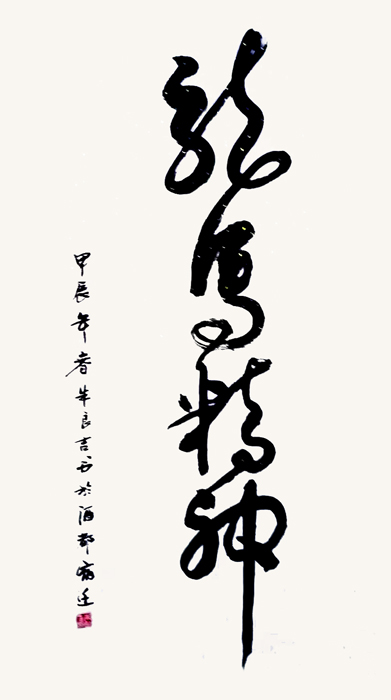 龍馬精神
甲辰年春朱良吉书於酒都宿迁